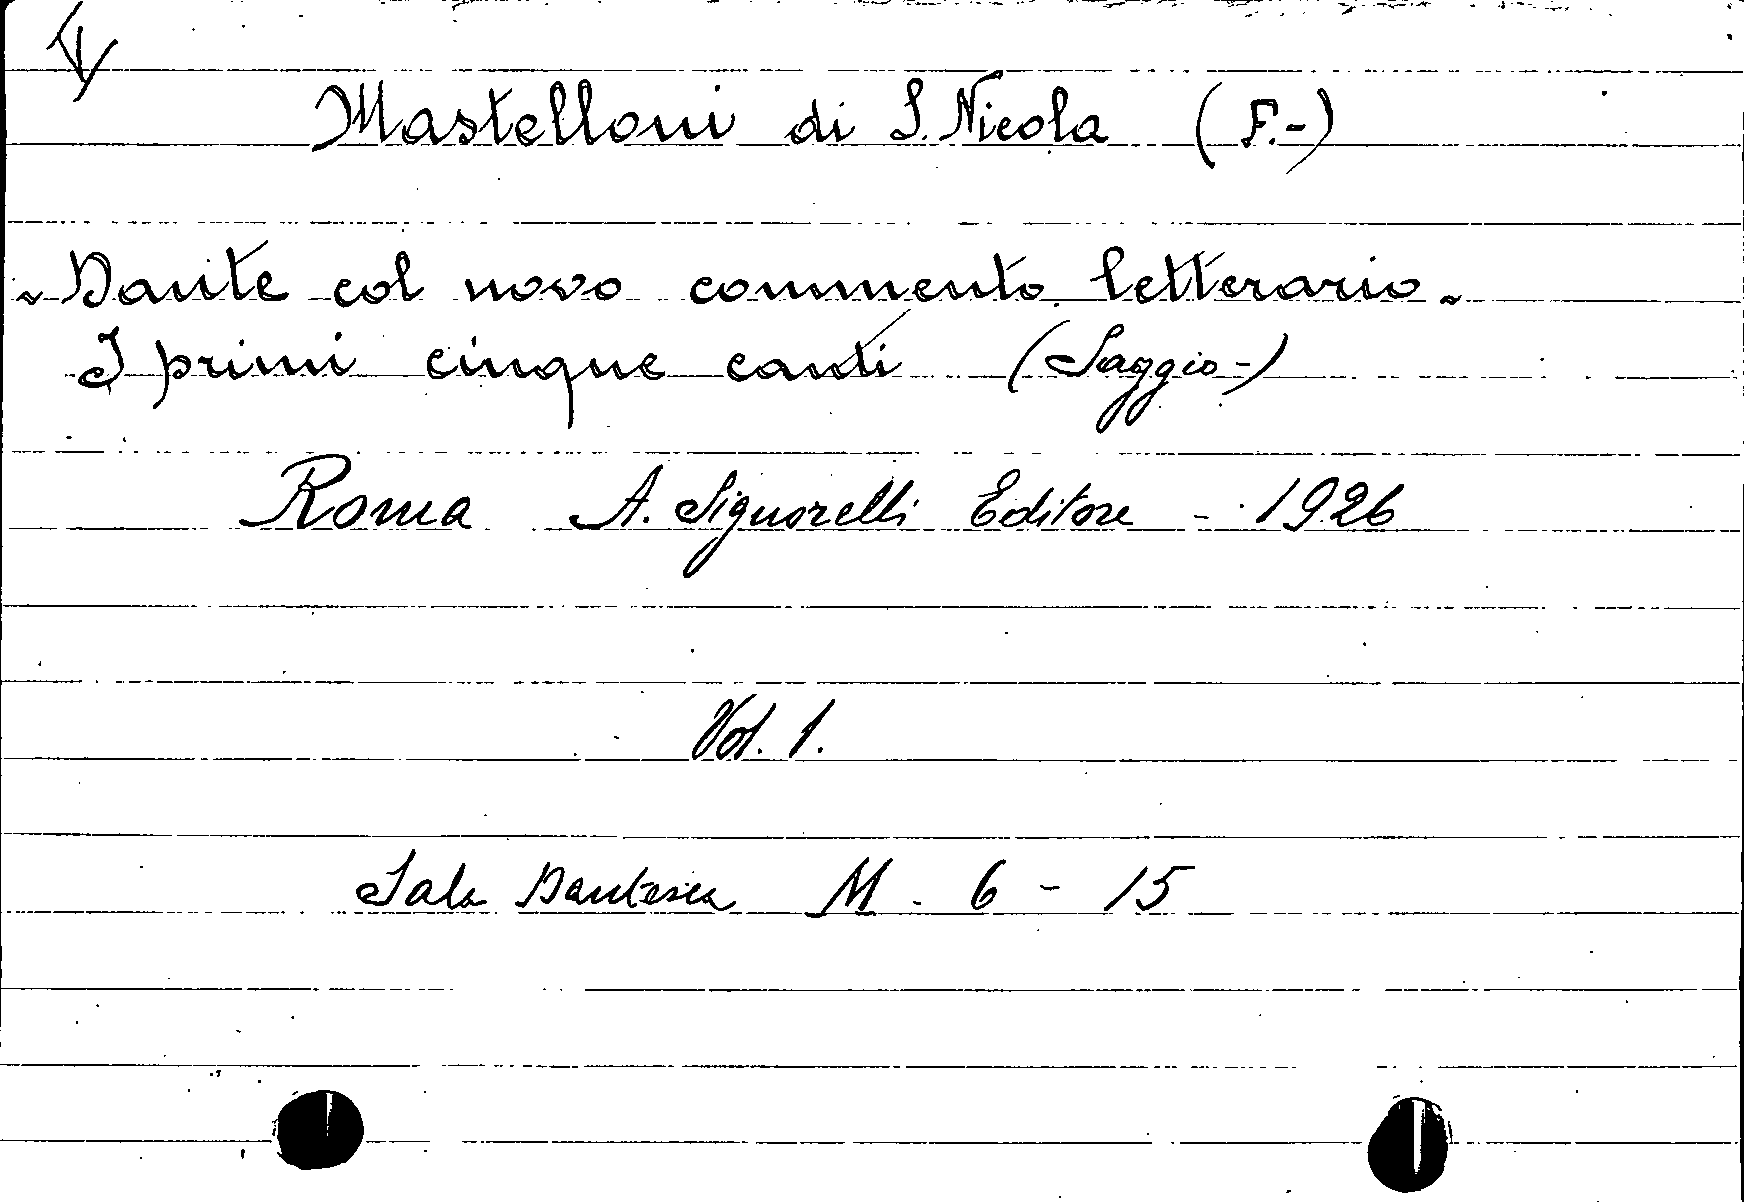 Mastelloni di S. Nicola (F.-)
"Dante col novo commento letterario"
I primi cinque canti (Saggio-)
Roma A. Signorelli Editore - 1926
Vol. 1.
Sala Dantesca M. 6 - 15